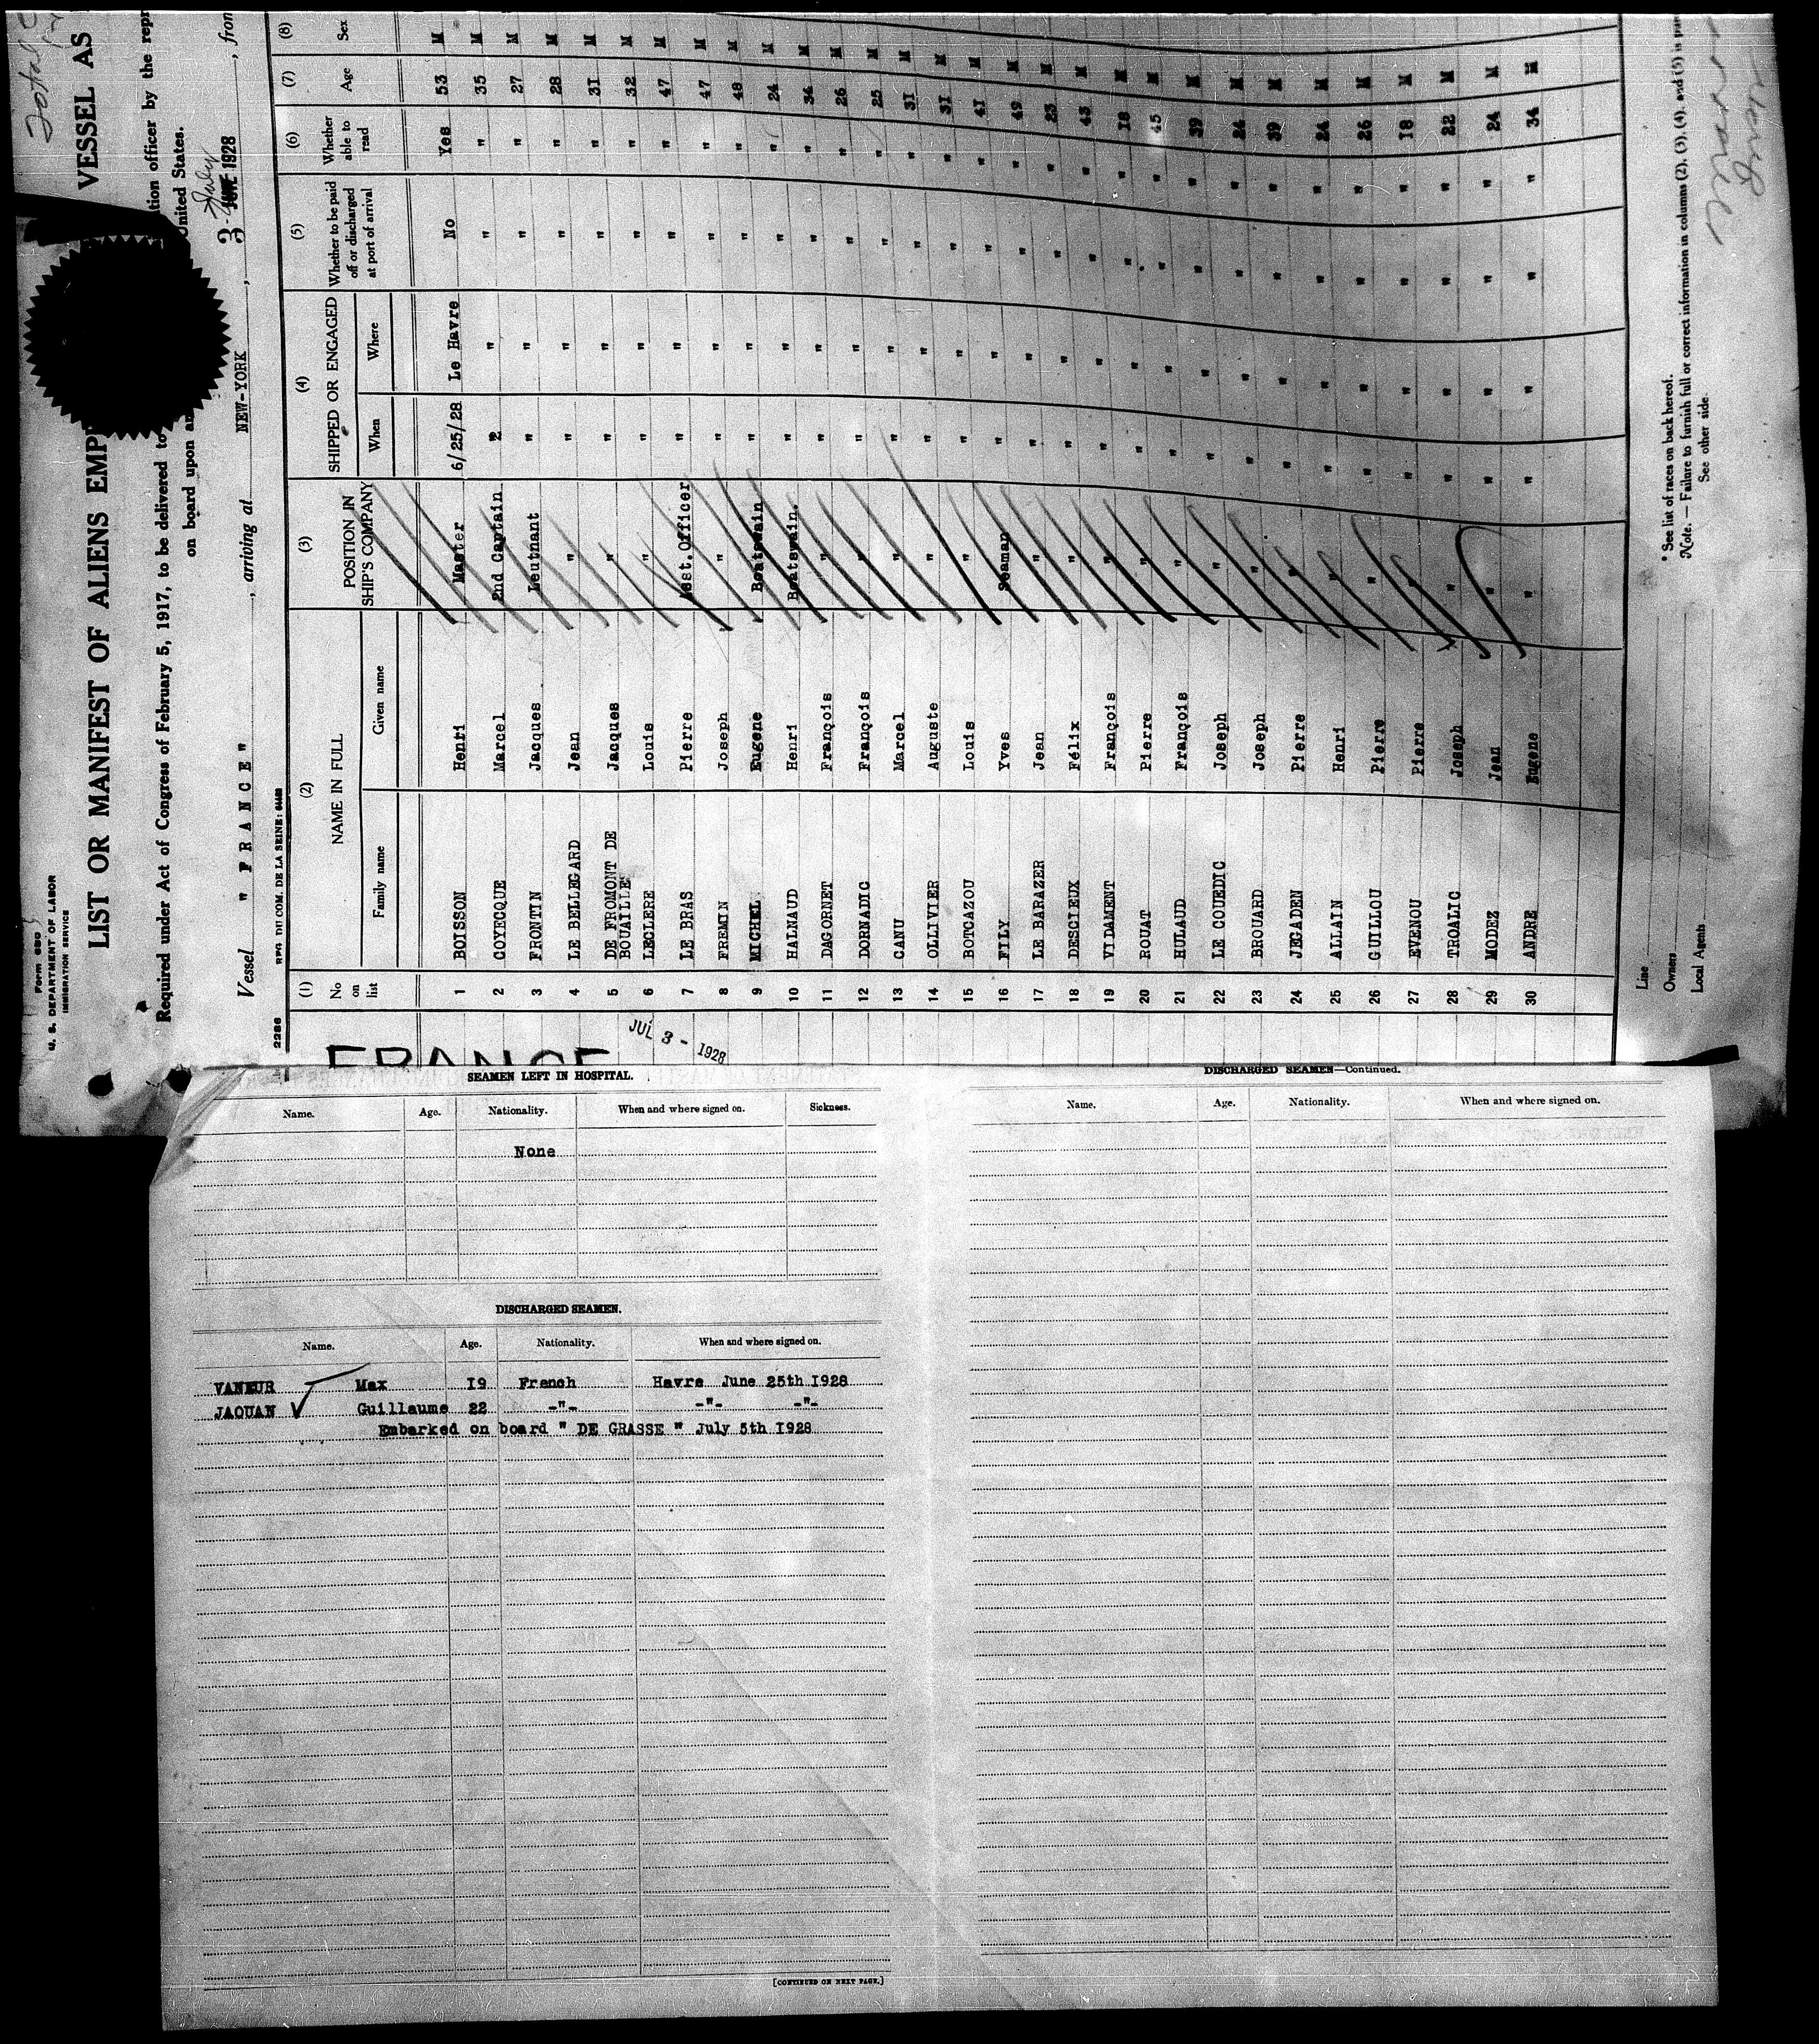 Form 680
U. S. DEPARTMENT OF LABOR
IMMIGRATION SERVICE
LIST OR MANIFEST OF ALIENS EMP VESSEL AS
Required under Act of Congress of February 5, 1917, to be delivered to tion officer by the repr
on board upon United States.
Vessel " FRANCE " , arriving at NEW-YORK , 3 - July JUNE 1928 , from
2286 RPG. DU COM. DE LA SEINE:
(1) (2) (3) (4) (5) (6) (7) (8)
No on list NAME IN FULL POSITION IN SHIP'S COMPANY SHIPPED OR ENGAGED Whether to be paid off or discharged at port of arrival Whether able to read Age Sex
Family name Given name When Where
1 BOISSON Henri Master 6/25/28 Le Havre No Yes 53 M
2 COYECQUE Marcel 2nd Captain " " " " 35 M
3 FRONTIN Jacques Leutnant " " " " 27 M
4 LE BELLEGARD Jean " " " " " 28 M
5 DE FROMONT DE BOUAILLE Jacques " " " " " 3I M
6 LECLERE Louis " " " " " 32 M
7 LE BRAS Pierre Asst. Officer " " " " 47 M
8 FREMIN Joseph " " " " " 47 M
9 MICHEL Eugene Boatswain " " " " 48 M
10 HALNAUD Henri Boatswain. " " " " 24 M
11 DAGORNET François " " " " " 34 M
12 DORNADIC François " " " " " 26 M
13 CANU Marcel " " " " " 25 M
14 OLLIVIER Auguste " " " " " 3I M
15 BOTCAZOU Louis " " " " " 3I M
16 FILY Yves Seaman " " " " 4I M
17 LE BARAZER Jean " " " " " 49 M
18 DESCIEUX Félix " " " " " 23 M
19 VIDAMENT François " " " " " 43 M
20 ROUAT Pierre " " " " " I8 M
21 HULAUD François " " " " " 45 M
22 LE COUEDIC Joseph " " " " " 39 M
23 BROUARD Joseph " " " " " 24 M
24 JEGADEN Pierre " " " " " 39 M
25 ALLAIN Henri " " " " " 24 M
26 GUILLOU Pierre " " " " " 26 M
27 EVENOU Pierre " " " " " I8 M
28 TROALIC Joseph " " " " " 22 M
29 MODEZ Jean " " " " " 24 M
30 ANDRE Eugene " " " " " 34 M
FRANCE
JUL 3 - 1928
Line
Owners
Local Agents
* See list of races on back hereof.
Note. — Failure to furnish full or correct information in columns (2), (3), (4), and (5) is
See other side.
SEAMEN LEFT IN HOSPITAL.
Name. Age. Nationality. When and where signed on. Sickness.
None
DISCHARGED SEAMEN.
Name. Age. Nationality. When and where signed on.
VANEUR Max I9 French Havre June 25th I928
JAOUAN Guillaume 22 -"- -"- -"-
Embarked on board " DE GRASSE " July 5th I928
[CONTINUED ON NEXT PAGE.]
DISCHARGED SEAMEN—Continued.
Name. Age. Nationality. When and where signed on.